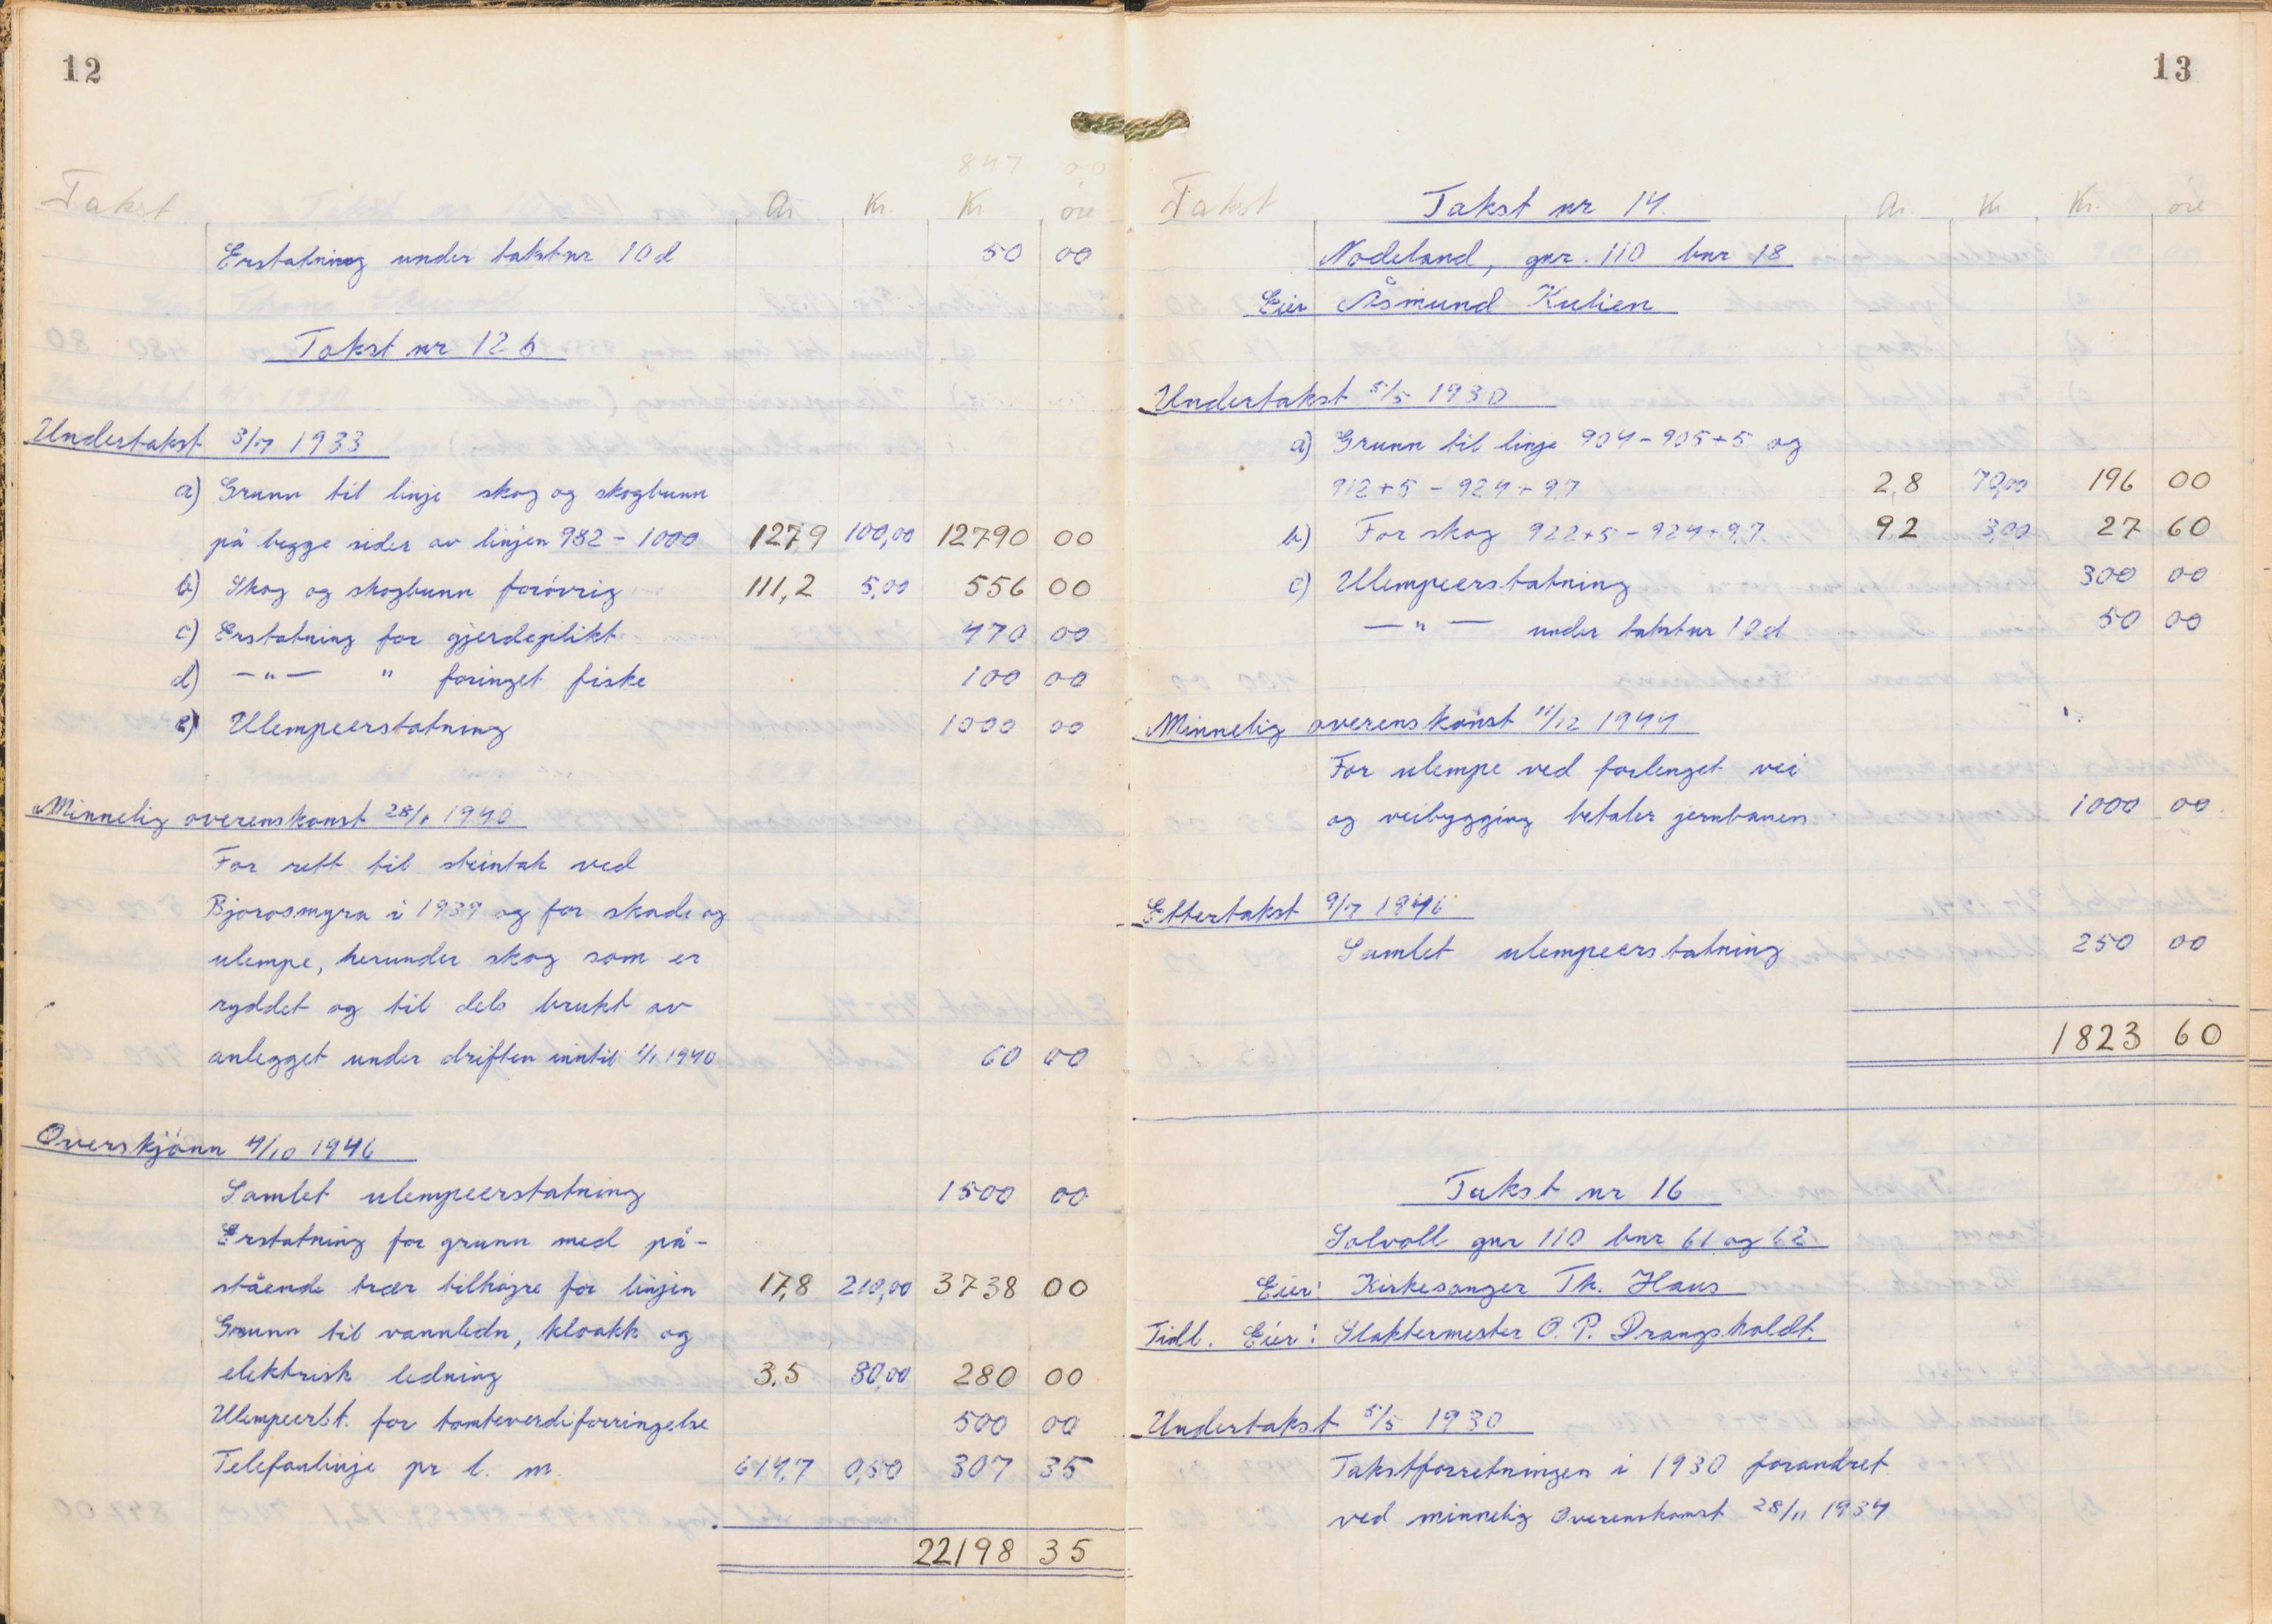 12
847 00
Takst Ar Kr. Kr øre
Erstatning under takst nr 10d 50 00
Takst nr 12 b
Undertakst 3/7 1933
a) Grunn til linje skog og skogbunn
på begge sider av linjen 982 - 1000 127,9 100,00 12790 00
b) Skog og skogbunn forøvrig 111,2 5,00 556 00
c) Erstatning for gjerdeplikt 470 00
d) — " — " foringet fiske 100 00
e) Ulempeerstatning 1000 00
Minnelig overenskomst 1940
For rett til steintak ved
Bjorosmyra i 1939 og for skade og
ulempe, herunder skog som er
ryddet og til dels brukt av
anlegget under driften inntil 1/1 1940 60 00
Overskjønn 4/10 1946
Samlet ulempeerstatning 1500 00
Erstatning for grunn med på-
stående trær tilhøgre for linjen 17,8 210,00 3738 00
Grunn til vannledn, kloakk og
elektrisk ledning 3.5 80,00 280 00
Ulempeerst. for tomteverdiforringelse 500 00
Telefonlinje pr l. m. 614,7 0,50 307 35
22198 35
13
Takst Takst nr 14. Ar Kr Kr. øre
Nodeland, gnr. 110 bnr 18
Eier Åsmund Kulien
Undertakst 5/5 1930
a) Grunn til linje 904 - 905+5 og
912+5 - 924+9,7 2,8 70,00 196 00
b) For skog 922+5 - 924+9,7 9,2 3,00 27 60
c) Ulempeerstatning 300 00
— " — under takst nr 10d 50 00
Minnelig overenskomst 11/12 1944
For ulempe ved forlenget vei
og veibygging betaler jernbanen 1000 00
Ettertakst 9/7 1946
Samlet ulempeerstatning 250 00
1823 60
Takst nr 16
Solvoll gnr 110 bnr 61 og 62
Eier: Kirkesanger Th. Haus
Tidl. Eier: Slaktermester O. P. Drangsholdt.
Undertakst 5/5 1930
Takstforretningen i 1930 forandret
ved minnelig overenskomst 28/11 1934